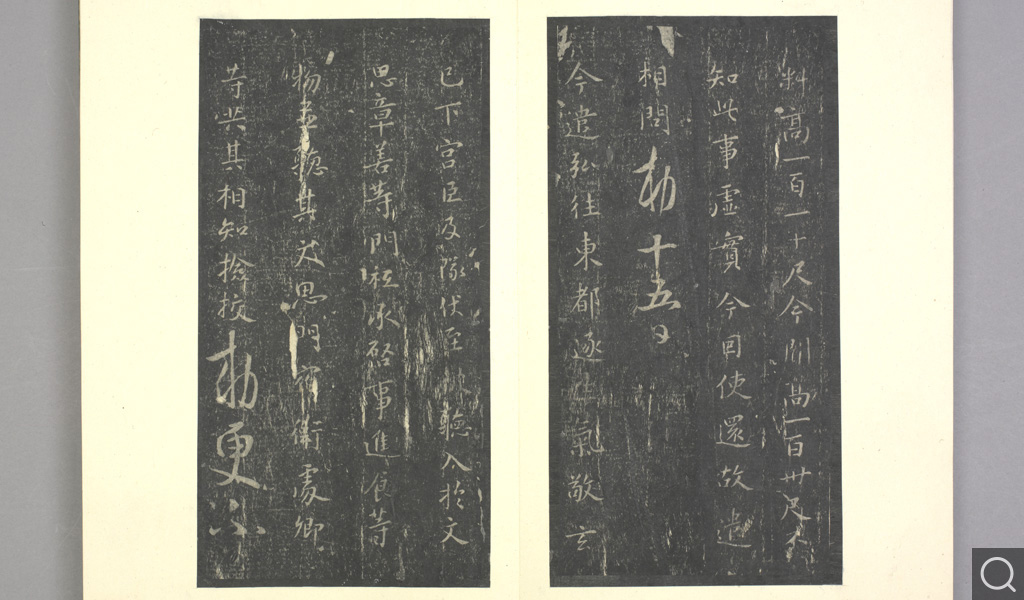 料高一百一十尺今聞高一百卅尺不
知此事虛實今因使還故遣
相問敕十五日
今遣弘往東都逐
氣敬玄
已下宮臣及隊仗至 聽入於文
思章善等門祗承啓事進食等
物並聽其 思門宿衛處卿
等共其相知撿挍敕更不